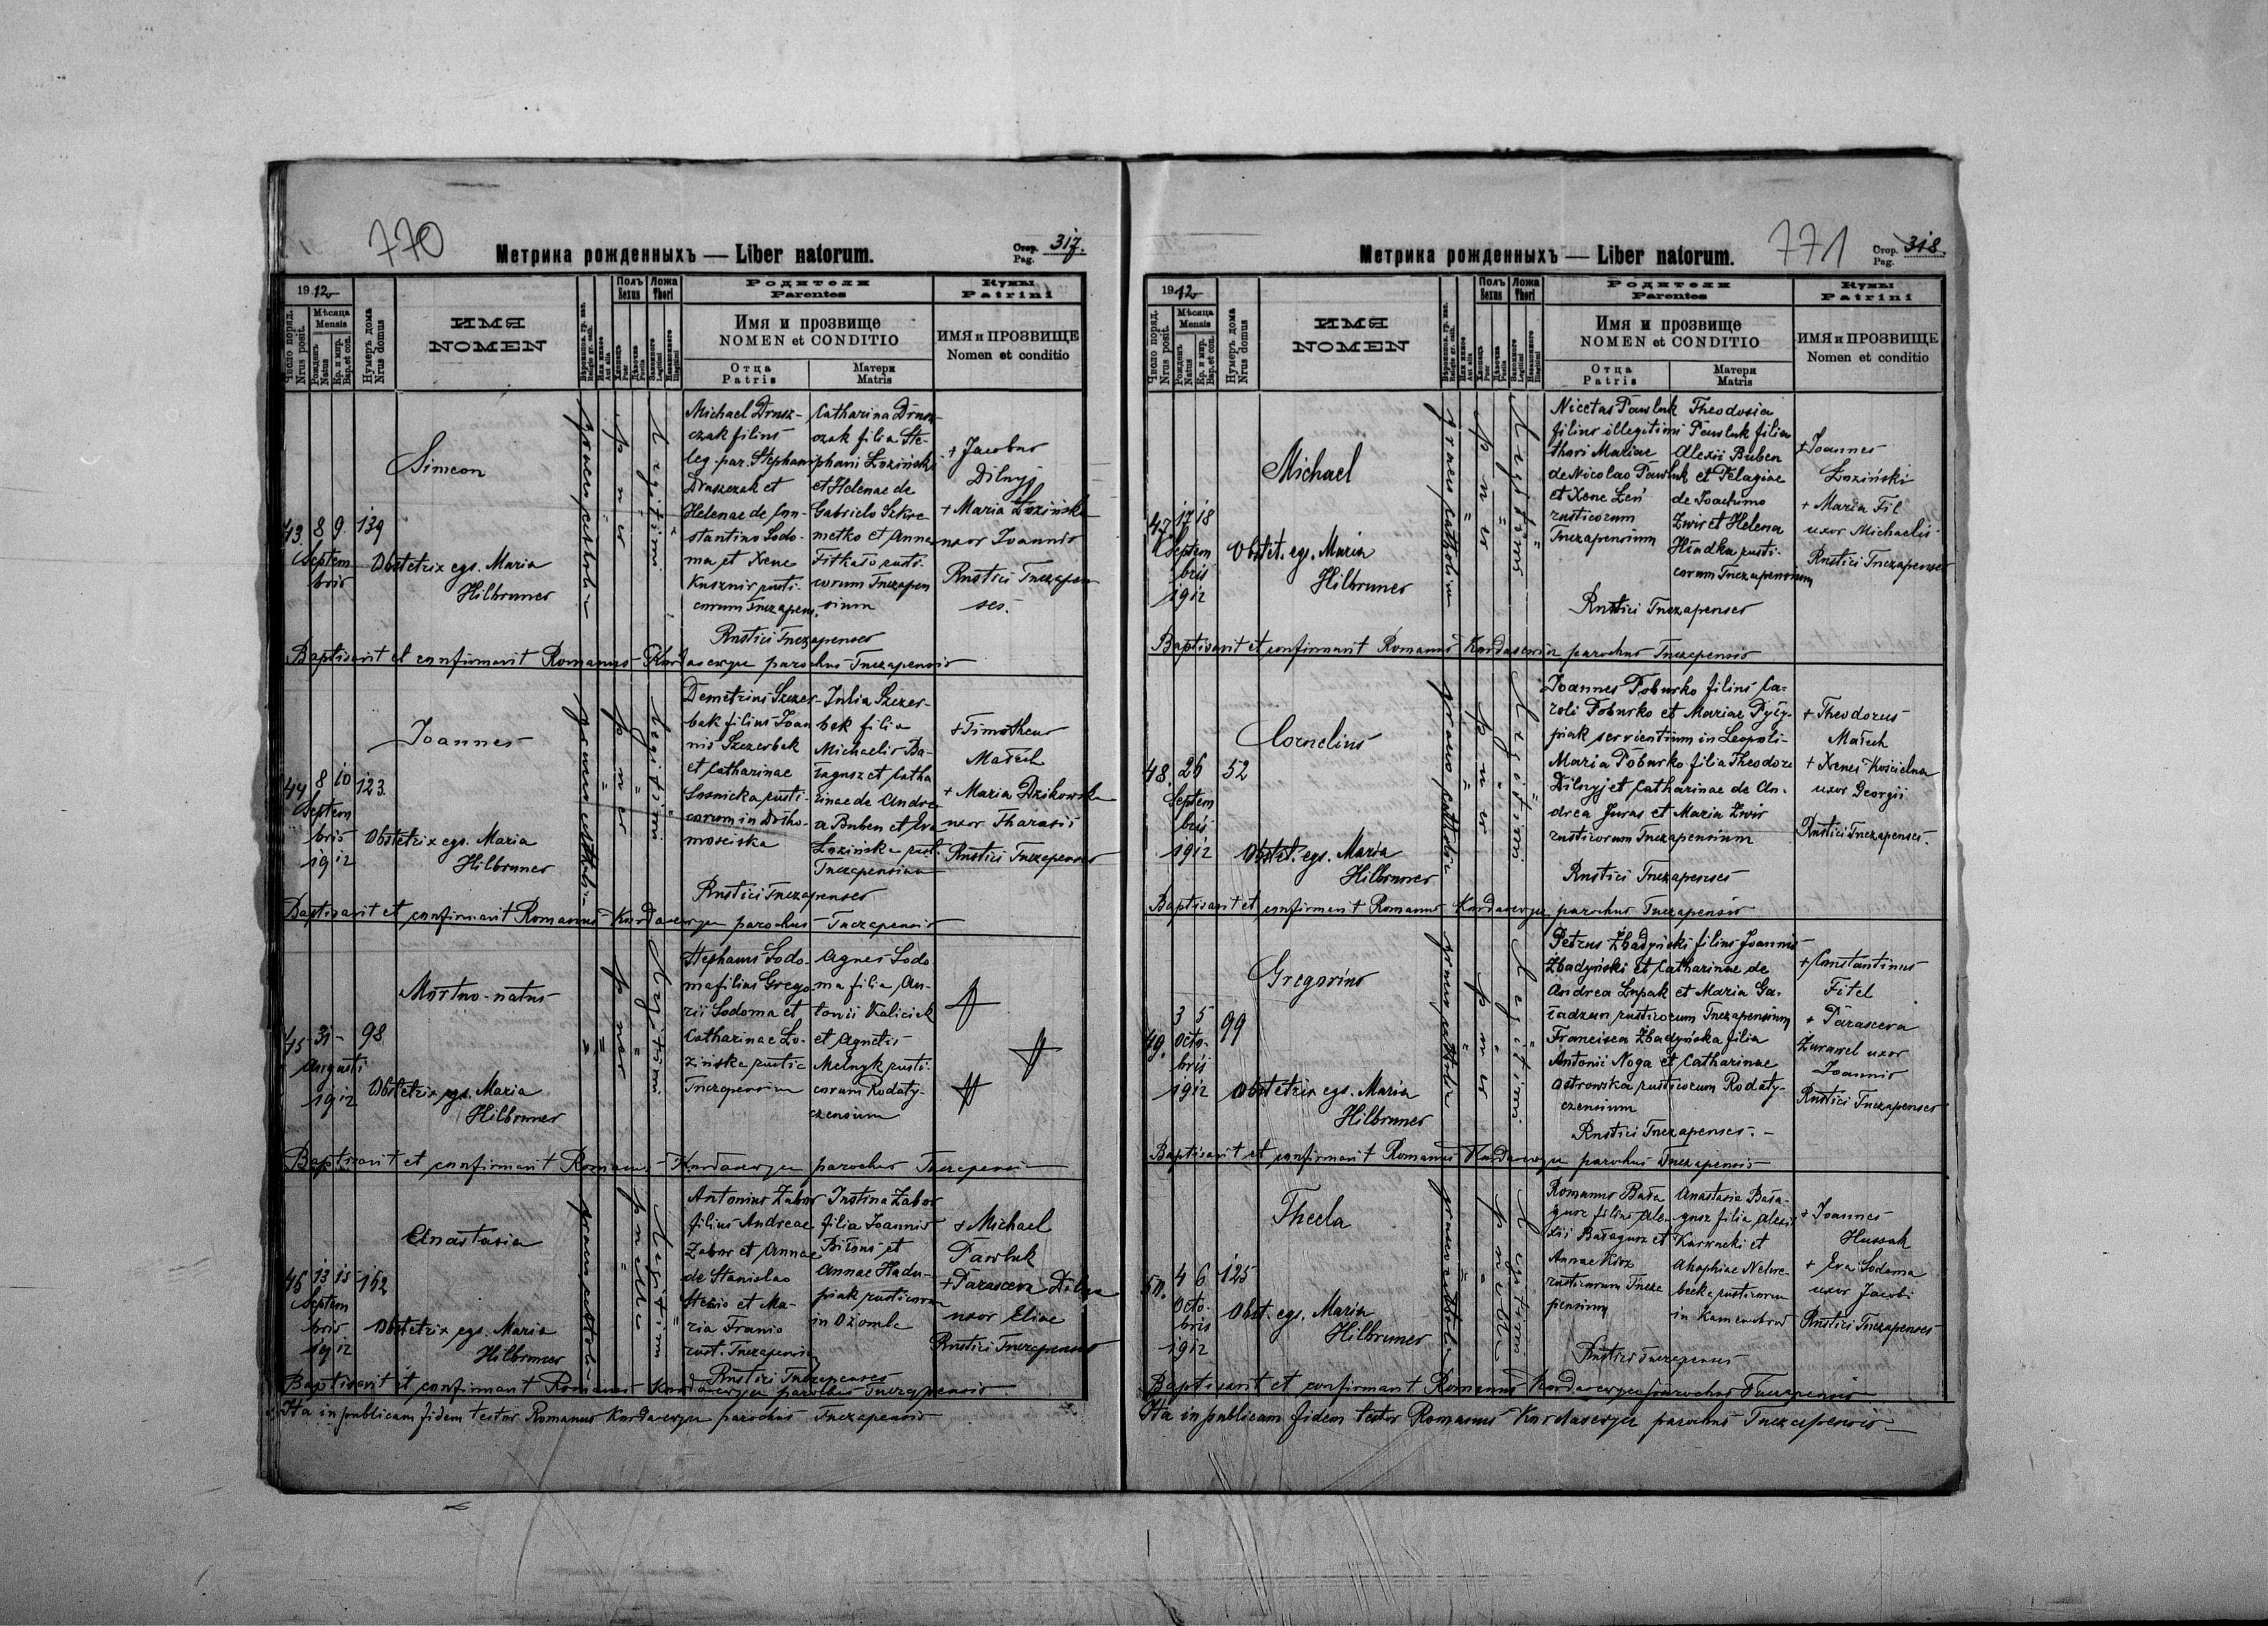 770
Метрика рожденныхъ — Liber natorum.
Стор. Pag. 317.
1912
Число поряд. Nrus posit.
Мѣсяца Mensis
Рожденъ Natus
Кр. и мир. Bap. et con.
Нумеръ дома Nrus domus
ИМЯ
NOMEN
Полъ Sexus
Хлопець Puer
Дѣвочка Puella
Ложа Thori
Законного Legitimi
Незаконного Illegitimi
Родители
Parentes
Имя и прозвище
NOMEN et CONDITIO
Отца Patris
Матери Matris
Кумы
Patrini
ИМЯ и ПРОЗВИЩЕ
Nomen et conditio
43. 8 9 139
Septem
bris
Simeon
Obstetrix egs. Maria
Hilbruner
graeco catholica
puer
legitimi
Michael Drusz-
czak filius
leg. par. Stephani
Druszczak et
Helenae de Con-
stantino Sodo-
ma et Xene
Kusznir rusti-
corum Tuczapens.
Catharina Drusz-
czak filia Ste-
phani Łoziński
et Helenae de
Gabrielo Szkre-
metko et Anna
Fitkało rusti-
corum Tuczapen
sium
Rustici Tuczapenses
+ Jacobus
Dilnyj
+ Maria Łozińska
uxor Joannis
Rustici Tuczapen
ses.
Baptisavit et confirmavit Romanus Kurdasewycz parochus Tuczapensis
44. 8 10 123.
Septem
bris
1912
Joannes
Obstetrix egs. Maria
Hilbruner
graeco catholica
puer
legitimi
Demetrius Szczer-
bak filius Joan
nis Szczerbak
et Catharinae
Sosnicka rusti-
corum in Dołho-
mościska
Julia Szczer-
bak filia
Michaelis Ba-
łagusz et Catha
rinae de Andre-
a Buben et Eva
Łozińska rust.
Tuczapensium
Rustici Tuczapenses
+ Timotheus
Małech
+ Maria Dzikowska
uxor Tharasii
Rustici Tuczapenses
Baptisavit et confirmavit Romanus Kurdasewycz parochus Tuczapensis
45 31 - 98
Augusti
1912
Mortuo-natus
Obstetrix egs. Maria
Hilbruner
puer
legitimi
Stephanus Sodo-
ma filius Grego
rii Sodoma et
Catharinae Ło-
zińska rustic
Tuczapensium
Agnes Sodo
ma filia An-
tonii Kaliciak
et Agnetis
Melnyk rusti-
corum Rodaty-
czensium
Baptisavit et confirmavit Romanus Kurdasewycz parochus Tuczapensis
46 13 15 152
Septem
bris
1912
Anastasia
Obstetrix egs. Maria
Hilbruner
graeco catholica
puella
legitimi
Antonius Zabor
filius Andreae
Zabor et Annae
de Stanislao
et Ma-
ria Franio
rust. Tuczapensium
Justina Zabor
filia Joannis
et
Annae Hadu-
piak rusticorum
in Ożomla
Rustici Tuczapenses
+ Michael
Pawluk
+ Parasceva Dilna
uxor Eliae
Rustici Tuczapenses
Baptisavit et confirmavit Romanus Kurdasewycz parochus Tuczapensis
Ita in publicam fidem testor Romanus Kurdasewycz parochus Tuczapensis
771
Метрика рожденныхъ — Liber natorum.
Стор. Pag. 318.
1912
Число поряд. Nrus posit.
Мѣсяца Mensis
Рожденъ Natus
Кр. и мир. Bap. et con.
Нумеръ дома Nrus domus
ИМЯ
NOMEN
Полъ Sexus
Хлопець Puer
Дѣвочка Puella
Ложа Thori
Законного Legitimi
Незаконного Illegitimi
Родители
Parentes
Имя и прозвище
NOMEN et CONDITIO
Отца Patris
Матери Matris
Кумы
Patrini
ИМЯ и ПРОЗВИЩЕ
Nomen et conditio
47. 17 18
Septem
bris
1912
Michael
Obstet. egs. Maria
Hilbruner
graeco catholica
puer
legitimi
Nicetas Pawluk
filius illegitimi
thori Mariae
de Nicolao Pawluk
et Xene Łeń
rusticorum
Tuczapensium
Theodosia
Pawluk filia
Alexii Buben
et Pelagiae
de Joachimo
Zwir et Helena
Hładka rusti-
corum Tuczapensium
Rustici Tuczapenses
+ Joannes
Łoziński
+ Maria Fil
uxor Michaelis
Rustici Tuczapenses
Baptisavit et confirmavit Romanus Kurdasewicz parochus Tuczapensis
48. 26 52
Septem
bris
1912
Cornelius
Obstet. egs. Maria
Hilbruner
graeco catholica
puer
legitimi
Joannes Poburko filius Ca-
roli Poburko et Mariae Pyły-
piak servientium in Leopoli-
Maria Poburko filia Theodori
Dilnyj et Catharinae de An-
drea Juras et Maria Zwir
rusticorum Tuczapensium
Rustici Tuczapenses
+ Theodorus
Małech
+ Xenes Kościelna
uxor Georgii
Rustici Tuczapenses.
Baptisavit et confirmavit Romanus Kurdasewycz parochus Tuczapensis
49. 3 5 99
Octo-
bris
1912
Gregorius
Obstetrix egs. Maria
Hilbruner
graeco catholica
puer
legitimi
Petrus Zbadyński filius Joannis
Zbadyński et Catharinae de
Andrea Łupak et Maria Ga-
rusticorum Tuczapensium
Francisca Zbadyńska filia
Antonii Noga et Catharinae
Ostrowska rusticorum Rodaty-
czensium
Rustici Tuczapenses. -
+ Constantinus
Fitel
+ Parasceva
Żurawel uxor
Joannis
Rustici Tuczapenses
Baptisavit et confirmavit Romanus Kurdasewycz parochus Tuczapensis
50. 4 6 125
Octo-
bris
1912
Thecla
Obst. egs. Maria
Hilbruner
graeco catholica
puella
legitimi
Romanus Bała
gusz filius Ale-
xii Bałagusz et
Annae
rusticorum Tucza
pensium
Anastasia Bała-
gusz filia Alexii
et
in
Rustici Tuczapenses
+ Joannes
Hussak
+ Eva Sodoma
uxor Jacobi
Rustici Tuczapenses
Baptisavit et confirmavit Romanus Kurdasewycz parochus Tuczapensis
Ita in publicam fidem testor Romanus Kurdasewycz parochus Tuczapensis